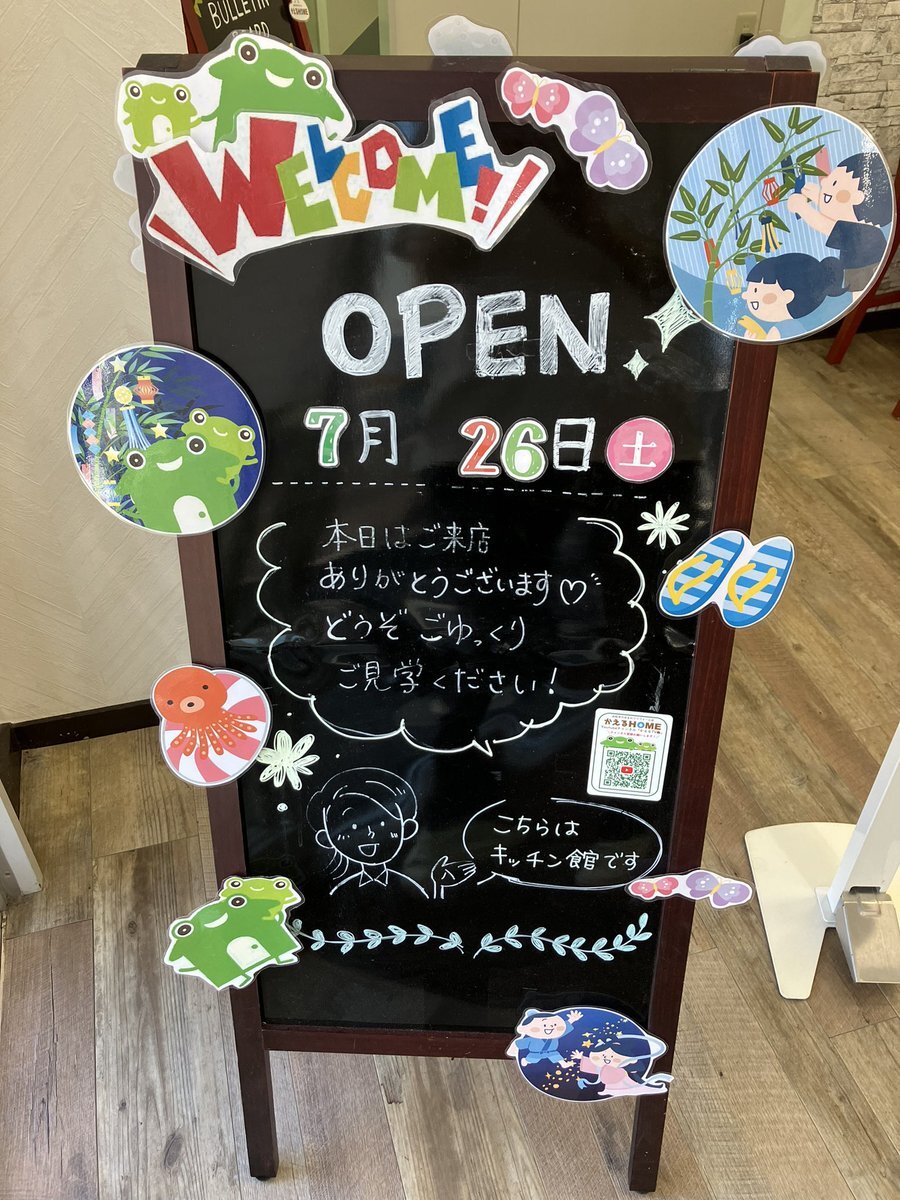 BULLETIN
BOARD
WELCOME!!
OPEN
7月 26日 土
本日はご来店
ありがとうございます♡
どうぞ ごゆっくり
ご見学ください!
かえるHOME
こちらは
キッチン館です